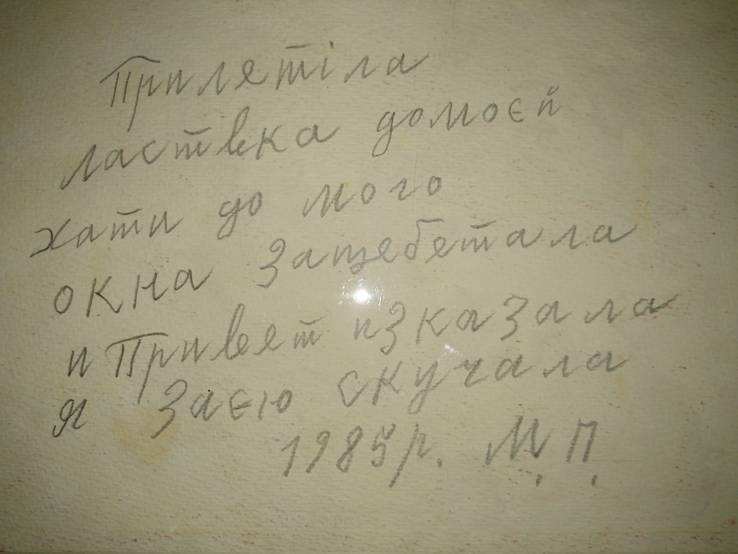 Прилятіла
ластвка домоєй
хати до мого
окна защебетала
и Привят изказала
я Заєю скучала
1985р. М.П.